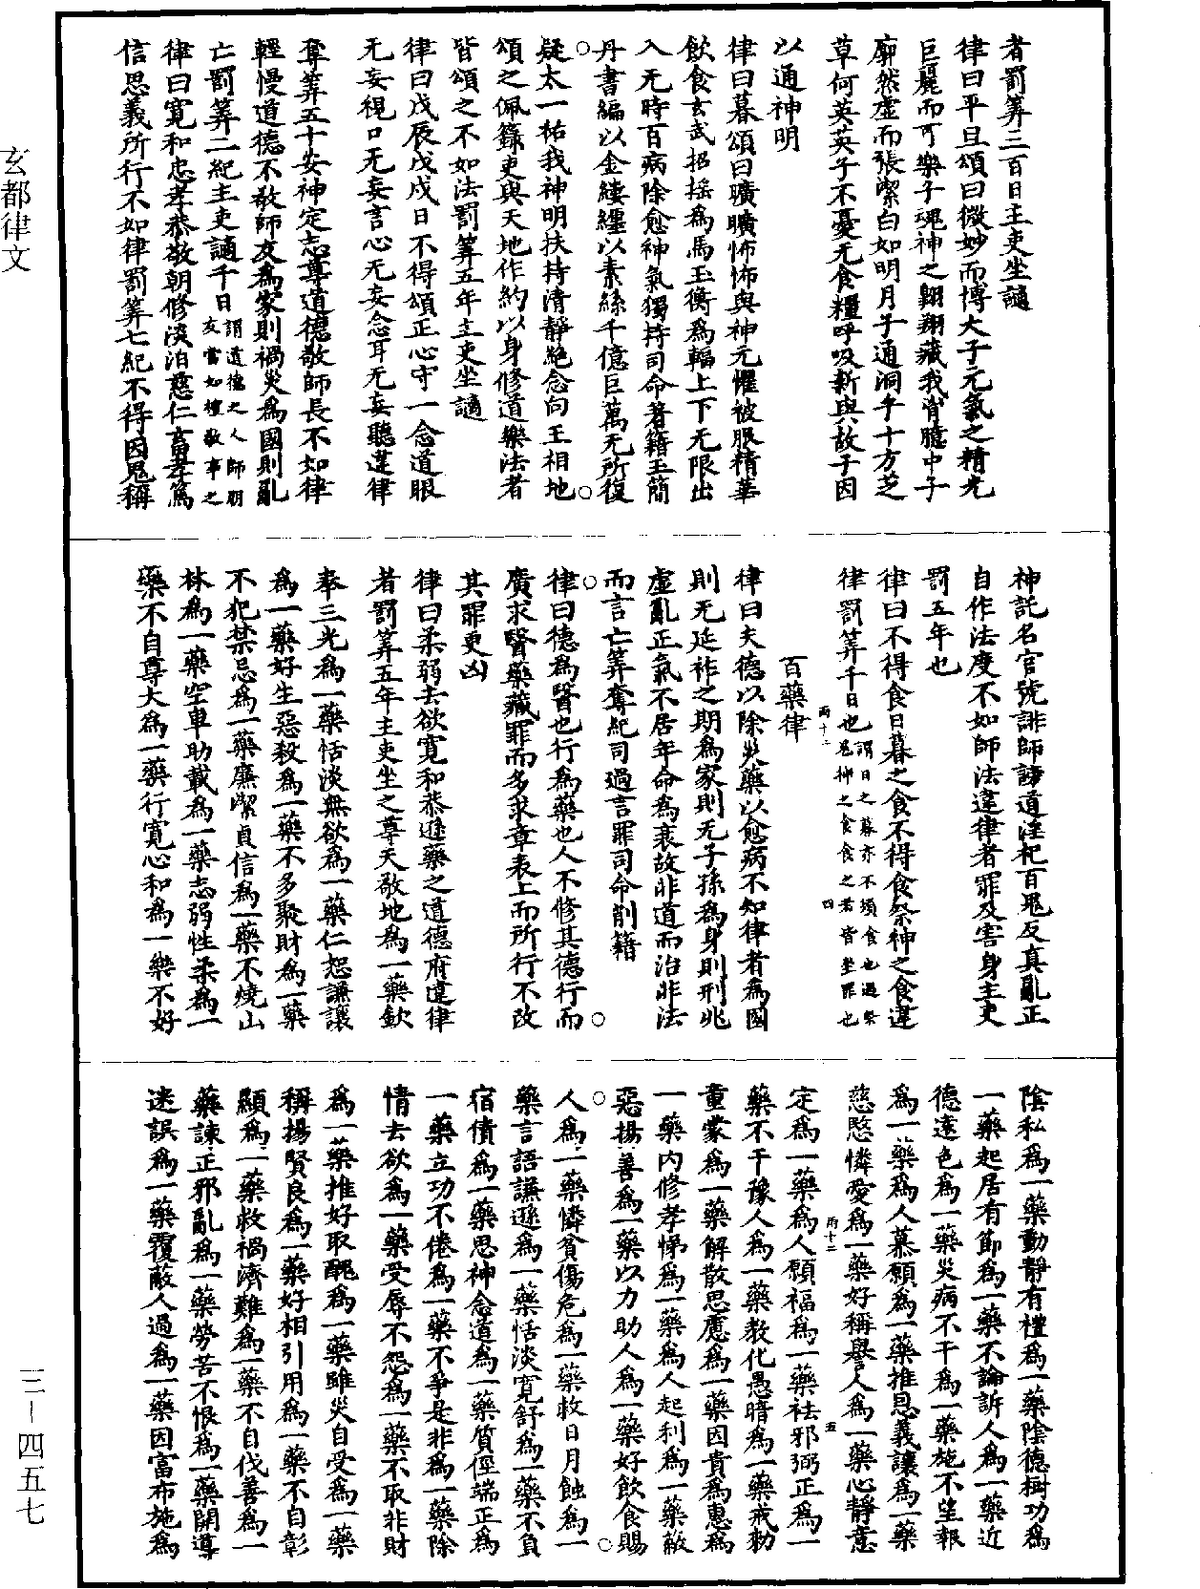 者罰筭三百日主吏坐讁
律曰平旦頌曰微妙而博大子元氣之精光
巨麗而可樂子魂神之翱翔藏我胷臆中子
廓然虛而張㓗白如明月子通洞乎十方芝
草何英英子不憂无食糧呼吸新與故子因
以通神明
律曰暮頌曰曠曠怖怖與神元懼被服精華
飲食玄武招搖為馬玉衡為輻上下无限出
入无時百病除愈神氣獨持司命著籍玉簡
丹書編以金縷纏以素絲千億巨萬无所復
疑太一祐我神明扶持清靜絕念向王相地
頌之佩籙吏與天地作約以身修道樂法者
皆頌之不如法罰筭五年主吏坐讁
律曰戊辰戊戌日不得頌正心守一念道眼
无妄視口无妄言心无妄念耳无妄聽違律
奪筭五十安神定志尊道德敬師長不如律
輕慢道德不敬師友為家則禍災為國則亂
亡罰筭二紀主吏讁千日謂道德之人師朋友當如禮敬事之
律曰寬和忠孝恭敬朝修淡泊慈仁畜孝篤
信思義所行不如律罰筭七紀不得因鬼稱
神託名官號誹師謗道淫祀百鬼反真亂正
自作法度不如師法違律者罪及害身主吏
罰五年也
律曰不得食日暮之食不得食祭神之食違
律罰筭千日也謂日之暮亦不須食也過祭鬼神之食食之者皆坐罪也
雨十二 四
百藥律
律曰夫德以除災藥以愈病不知律者為國
則无延祚之期為家則无子孫為身則刑兆
虛亂正氣不居年命為衰故非道而治非法
而言亡筭奪紀司過言罪司命削籍
律曰德為醫也行為藥也人不修其德行而
廣求醫藥藏罪而多求章表上而所行不改
其罪更凶
律曰柔弱去欲寬和恭遜藥之道德府違律
者罰筭五年主吏坐之尊天敬地為一藥欽
奉三光為一藥恬淡無欲為一藥仁恕謙讓
為一藥好生惡殺為一藥不多聚財為一藥
不犯禁忌為一藥廉㓗貞信為一藥不燒山
林為一藥空車助載為一藥志弱性柔為一
藥不自尊大為一藥行寬心和為一藥不好
陰私為一藥動靜有禮為一藥陰德樹功為
一藥起居有節為一藥不論訴人為一藥近
德遠色為一藥災病不干為一藥施不望報
為一藥為人慕願為一藥推恩義讓為一藥
慈愍憐愛為一藥好稱譽人為一藥心靜意
雨十二 五
定為一藥為人願福為一藥袪邪弼正為一
藥不干豫人為一藥教化愚暗為一藥戒勑
童蒙為一藥解散思慮為一藥因貴為惠為
一藥內修孝悌為一藥為人起利為一藥蔽
惡揚善為一藥以力助人為一藥好飲食賜
人為一藥憐貧傷危為一藥救日月蝕為一
藥言語謙遜為一藥恬淡寬舒為一藥不負
宿債為一藥思神念道為一藥質俓端正為
一藥立功不倦為一藥不爭是非為一藥除
情去欲為一藥受辱不怨為一藥不取非財
為一藥推好取醜為一藥雖災自受為一藥
稱揚賢良為一藥好相引用為一藥不自彰
顯為一藥救禍濟難為一藥不自伐善為一
藥諫正邪亂為一藥勞苦不恨為一藥開導
迷誤為一藥覆蔽人過為一藥因富布施為
玄都律文
三—四五七